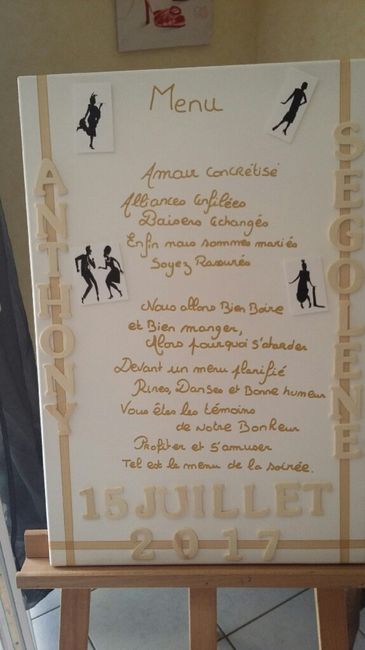 Menu
Amour concrétisé
Alliances enfilées
Baisers échangés
Enfin nous sommes mariés
Soyez Rassurés
Nous allons Bien Boire
et Bien manger,
Alors pourquoi s'attarder
Devant un menu planifié
Rires, Danses et Bonne humeur
Vous êtes les témoins
de notre Bonheur
Profiter et s'amuser
Tel est le menu de la soirée.
ANTHONY
SEGOLENE
15 JUILLET
2017